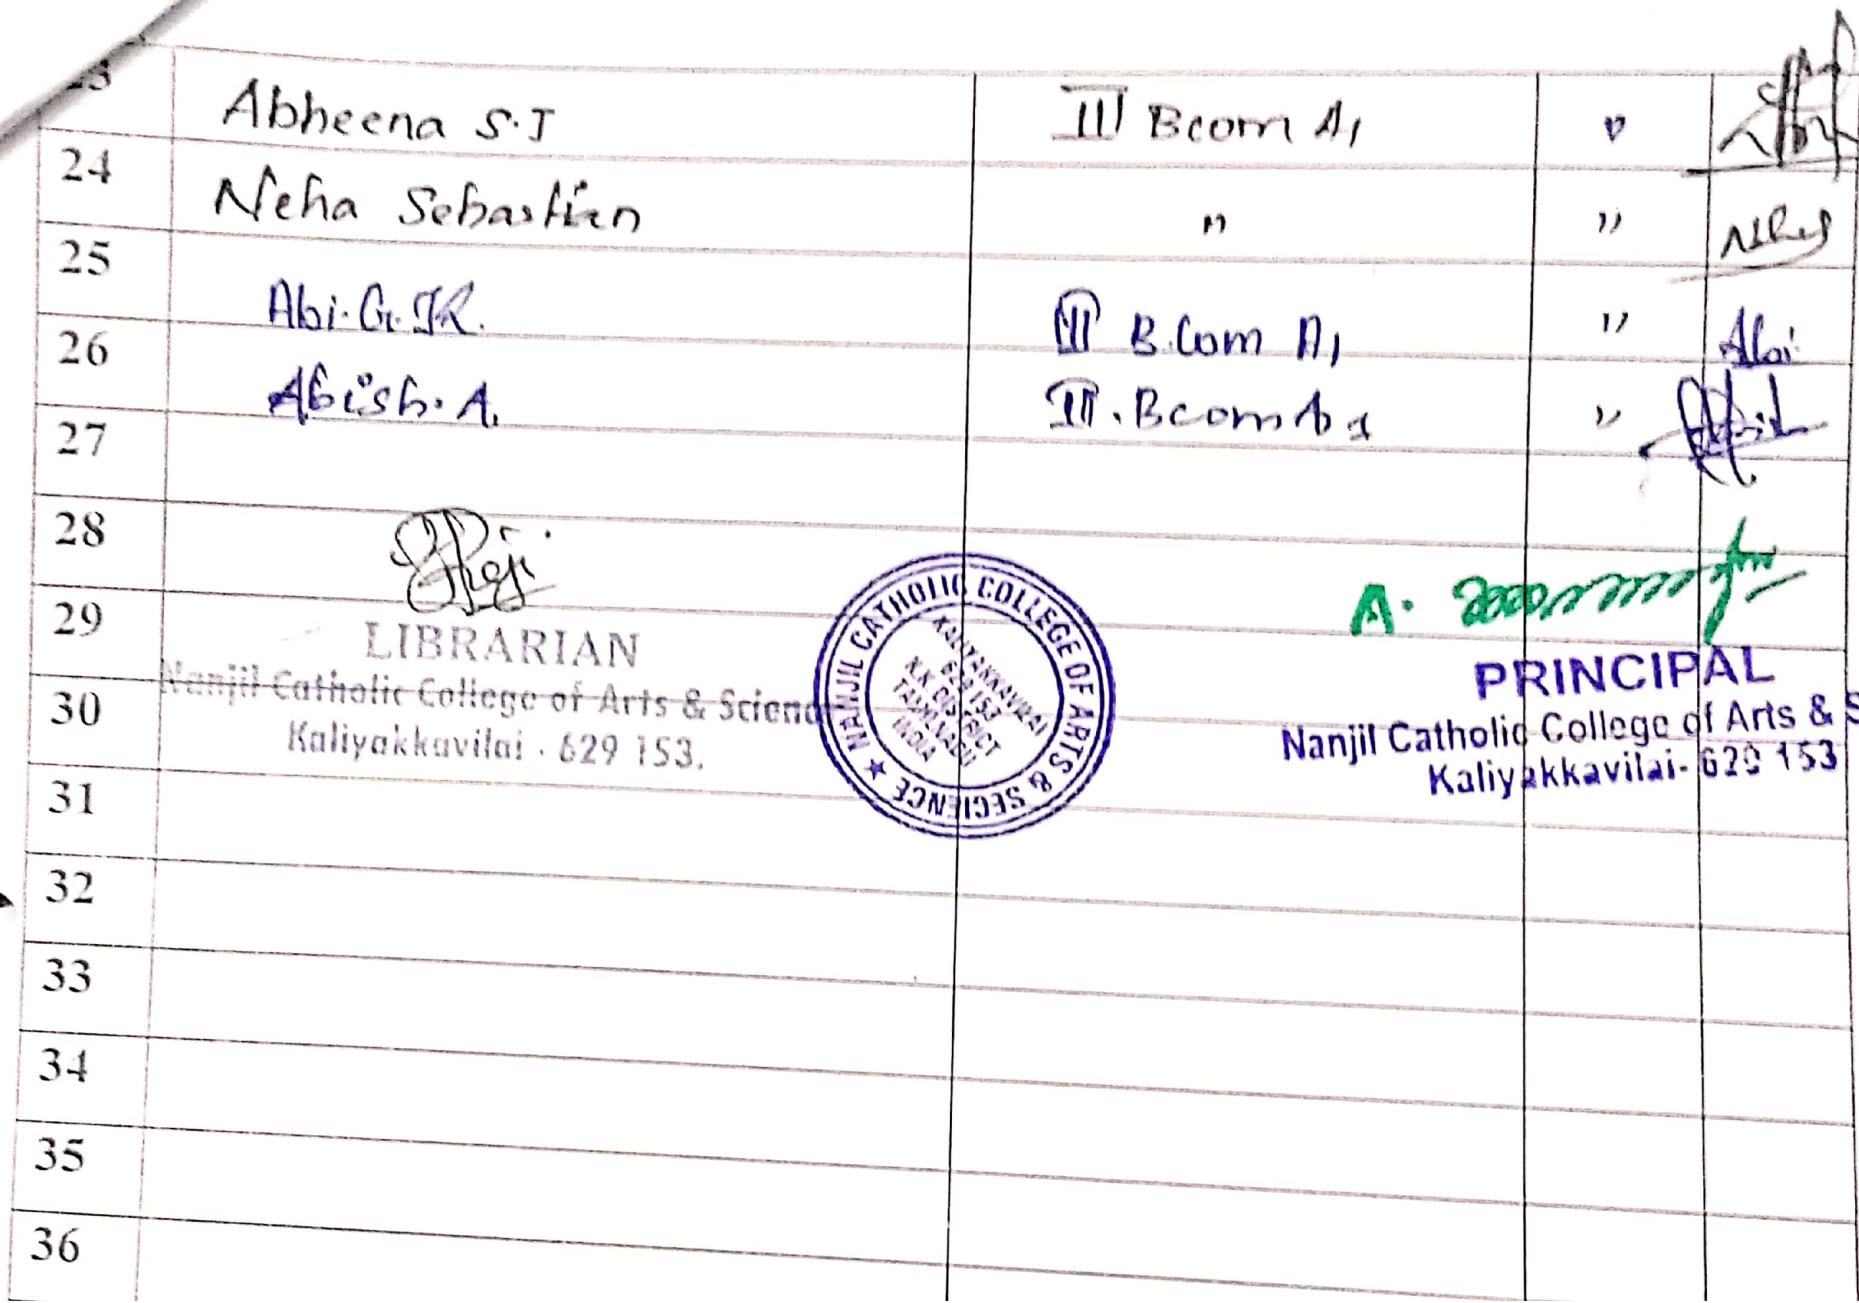 23 Abheena S.J III Bcom A1 "
24 Neha Sebastian " "
25 Abi. G. JR. III B.Com A1 " Abi
26 Abish. A. III. Bcom A1 "
27
28
29 LIBRARIAN
A.
PRINCIPAL
30 Nanjil Catholic College of Arts & Scienc
Kaliyakkavilai - 629 153.
NANJIL CATHOLIC COLLEGE OF ARTS & SECIENCE ★
KALIYAKKAVILAI
629 153
K.K DISTRICT
TAMIL NADU
INDIA
Nanjil Catholic College of Arts & S
Kaliyakkavilai- 629 153
31
32
33
34
35
36